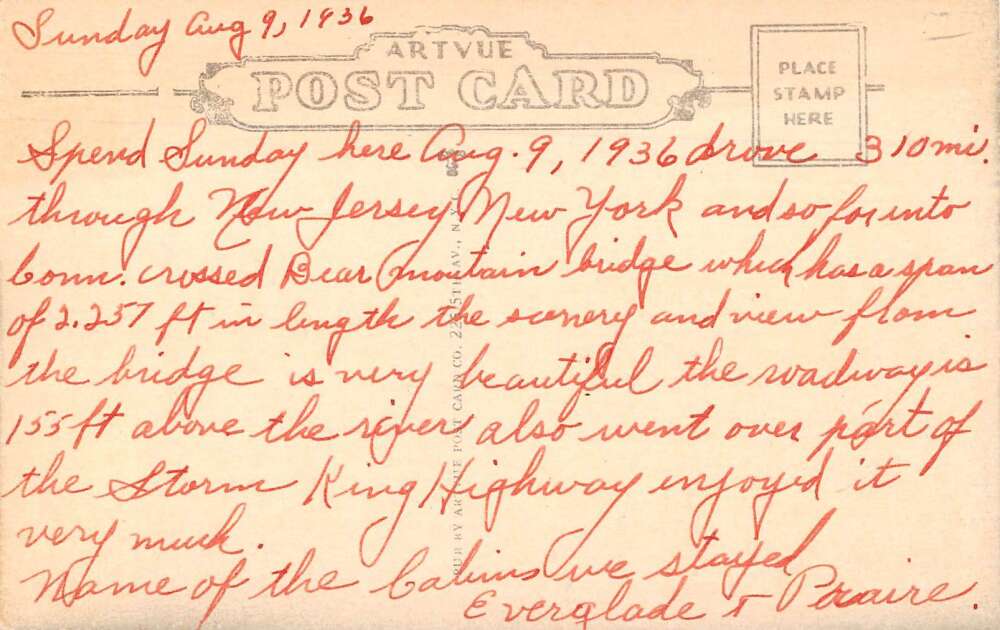 Sunday Aug 9, 1936
ARTVUE
POST CARD
PLACE
STAMP
HERE
Spend Sunday here Aug. 9, 1936 drove 310 mi.
through New Jersey New York and so far into
Conn. crossed Bear mountain bridge which has a span
of 2.257 ft in length the scenery and view from
the bridge is very beautiful the roadway is
155 ft above the river also went over part of
the Storm King Highway enjoyed it
very much.
Name of the Cabins we stayed
Everglade + Prairie.
PUB BY ARTVUE POST CARD CO. 225 5TH AV., N.Y.C.